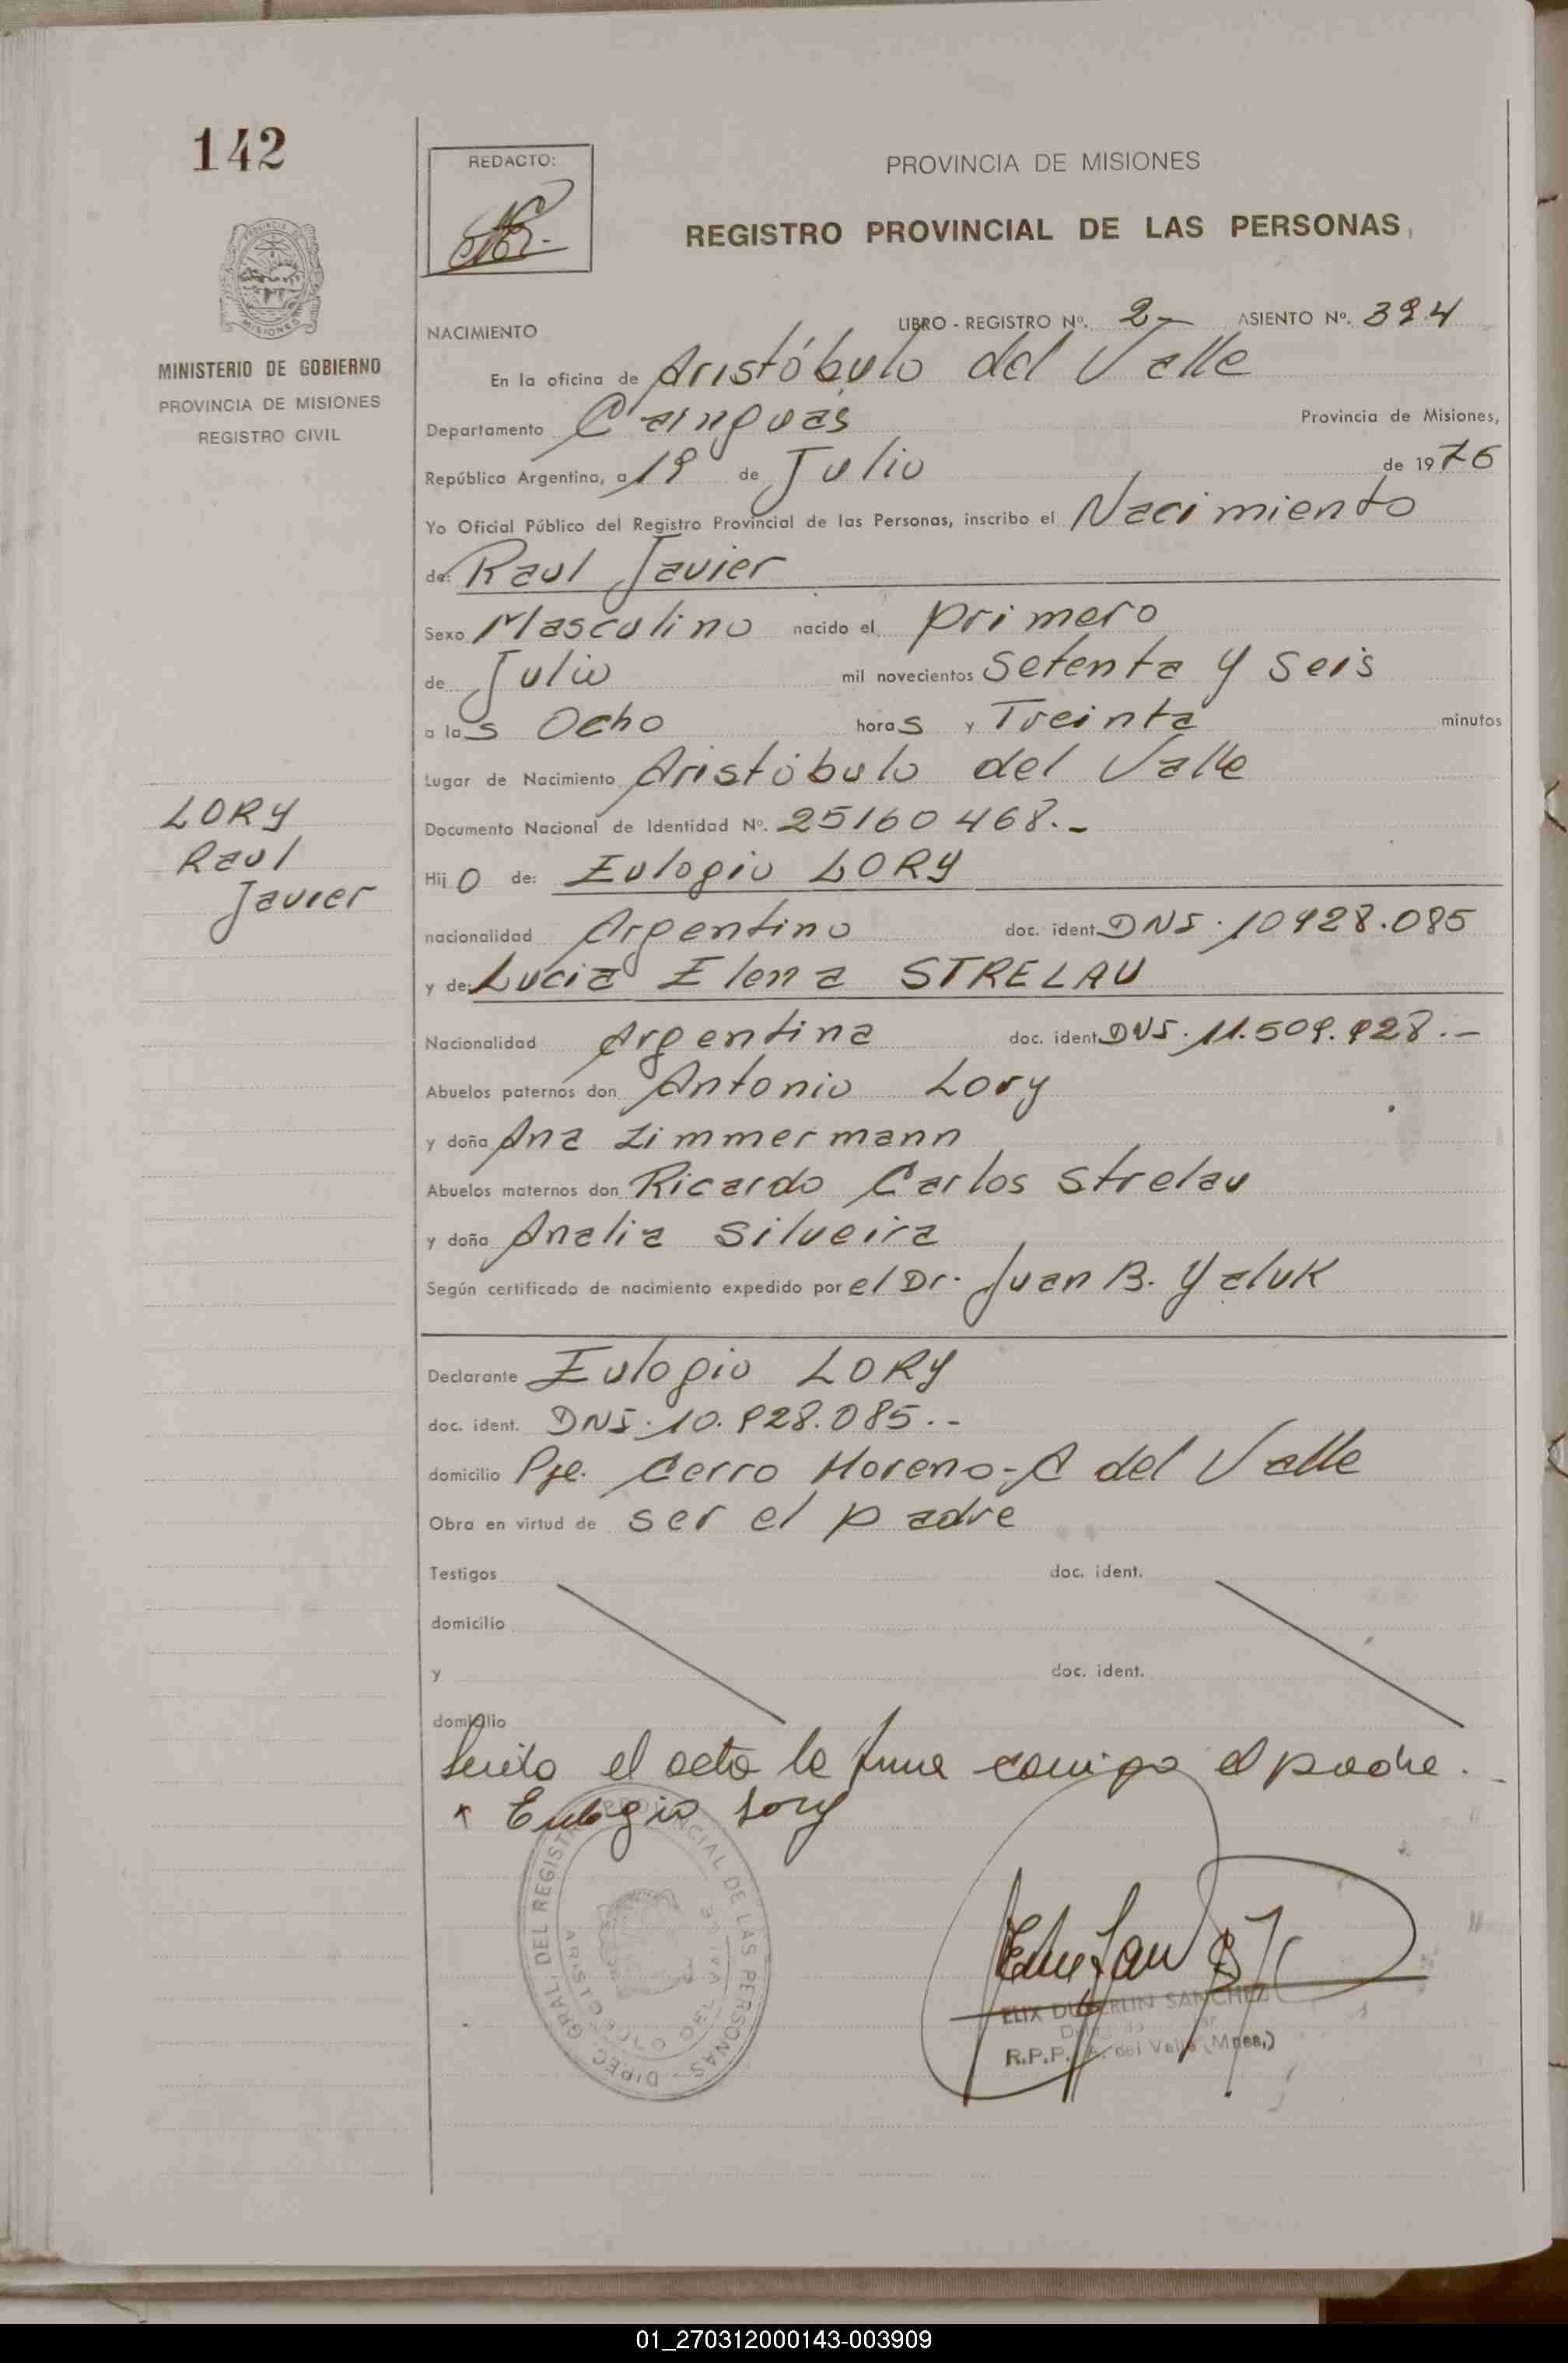 142
REDACTO:
PROVINCIA DE MISIONES
REGISTRO PROVINCIAL DE LAS PERSONAS
MISIONES
MINISTERIO DE GOBIERNO
PROVINCIA DE MISIONES
REGISTRO CIVIL
NACIMIENTO
LIBRO - REGISTRO Nº. 2- ASIENTO Nº. 394
En la oficina de Aristóbulo del Valle
Departamento Cainguás Provincia de Misiones,
República Argentina, a 19 de Julio de 1976
Yo Oficial Público del Registro Provincial de las Personas, inscribo el Nacimiento
de: Raul Javier
Sexo Masculino nacido el primero
de Julio mil novecientos setenta y seis
a las Ocho horas y Treinta minutos
Lugar de Nacimiento Aristóbulo del Valle
LORY
Raul
Javier
Documento Nacional de Identidad Nº. 25160468.-
Hijo de: Eulogio LORY
nacionalidad Argentino doc. ident. DNI. 10928.085
y de: Lucia Elena STRELAU
Nacionalidad Argentina doc. ident. DNI. 11.509.928.-
Abuelos paternos don Antonio Lory
y doña Ana Zimmermann
Abuelos maternos don Ricardo Carlos Strelau
y doña Analia Silveira
Según certificado de nacimiento expedido por el Dr. Juan B. Yaluk
Declarante Eulogio LORY
doc. ident. DNI. 10.928.085.-
domicilio Pje. Cerro Moreno-A del Valle
Obra en virtud de ser el padre
Testigos doc. ident.
domicilio
y doc. ident.
domicilio
Leido el acta la firma conmigo el padre.-
Eulogio Lory
DIREC. GRAL. DEL REGISTRO PROVINCIAL DE LAS PERSONAS
ARISTOBULO DEL VALLE
SANCHEZ
R.P.P. A. del Valle (Mnes.)
01_270312000143-003909